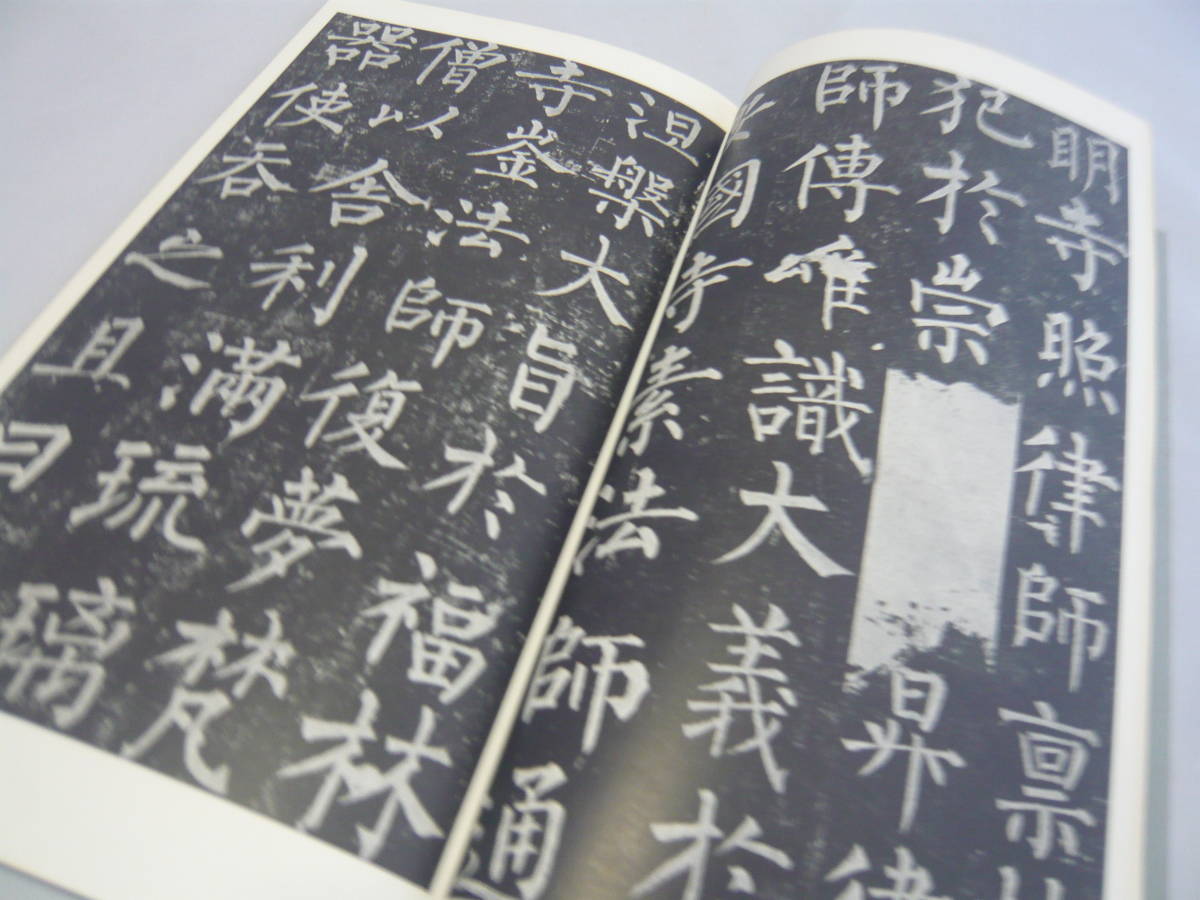 明寺照律師禀
犯於崇
昇律
師傳唯識大義於
安國寺素法師通
涅槃大旨於福林
寺崟法師復夢梵
僧以舍利滿琉璃
器使吞之且曰